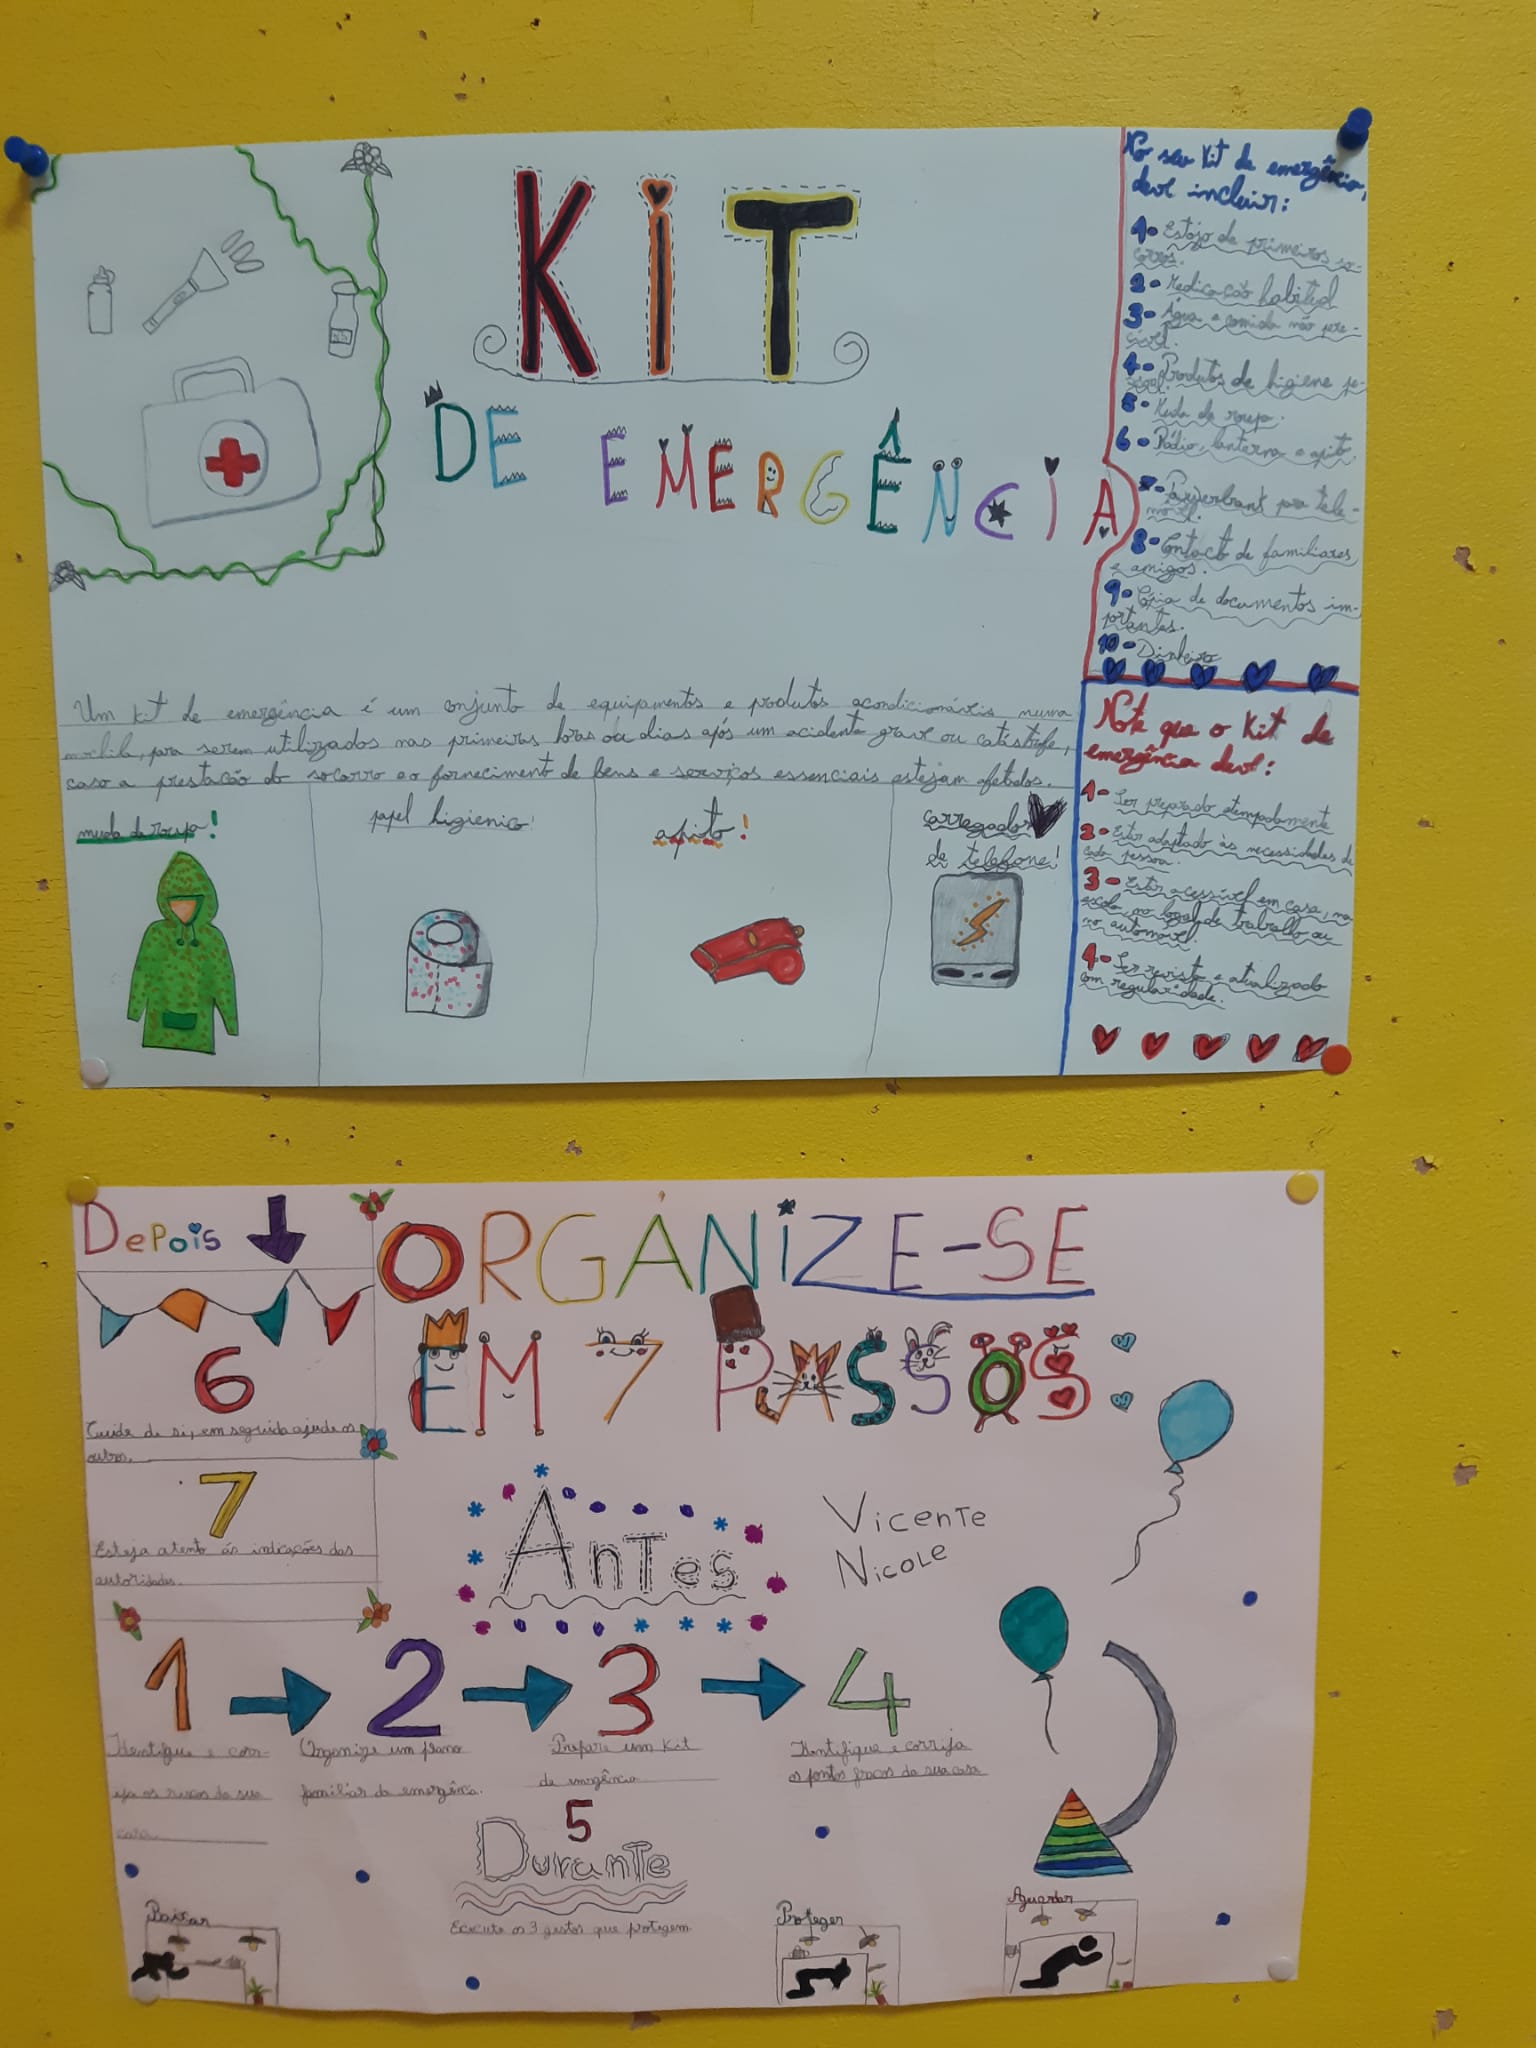 KIT
DE EMERGÊNCIA
No seu Kit de emergência,
deve incluir:
1- Estojo de primeiros so-
corros.
2- Medicação habitual
3- Água e comida não pere-
cível.
4- Produtos de higiene pe-
ssoal.
5- Muda de roupa.
6- Rádio, lanterna e apito.
7- Powerbank para tele-
móvel.
8- Contacto de familiares
e amigos.
9- Cópia de documentos im-
portantes.
10- Dinheiro
Um kit de emergência é um conjunto de equipamentos e produtos acondicionáveis numa
mochila, para serem utilizados nas primeiras horas ou dias após um acidente grave ou catástrofe,
caso a prestação do socorro e o fornecimento de bens e serviços essenciais estejam afetados.
muda de roupa!
papel higienico!
apito!
carregador
de telefone!
Note que o Kit de
emergência deve:
1- Ser preparado atempadamente
2- Estar adaptado às necessidades de
cada pessoa.
3- Estar acessível em casa, na
escola, no local de trabalho ou
no automóvel.
4- Ser revisto e atualizado
com regularidade.
DePois
ORGÁNIZE-SE
EM 7 PASSOS:
6
Cuide de si, em seguida ajude os
outros.
7
Esteja atento ás indicações das
autoridades.
AnTes
Vicente
Nicole
1 2 3 4
Identifique e corr-
ija os riscos da sua
casa.
Organize um plano
familiar da emergência.
Prepare um Kit
de emergência.
Identifique e corrija
os pontos fracos da sua casa
5
DuranTe
Execute os 3 gestos que protegem
Baixar
Proteger
Aguardar